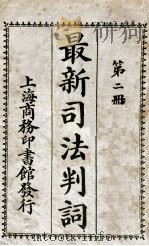 第二冊
最新司法判詞
上海商務印書館發行